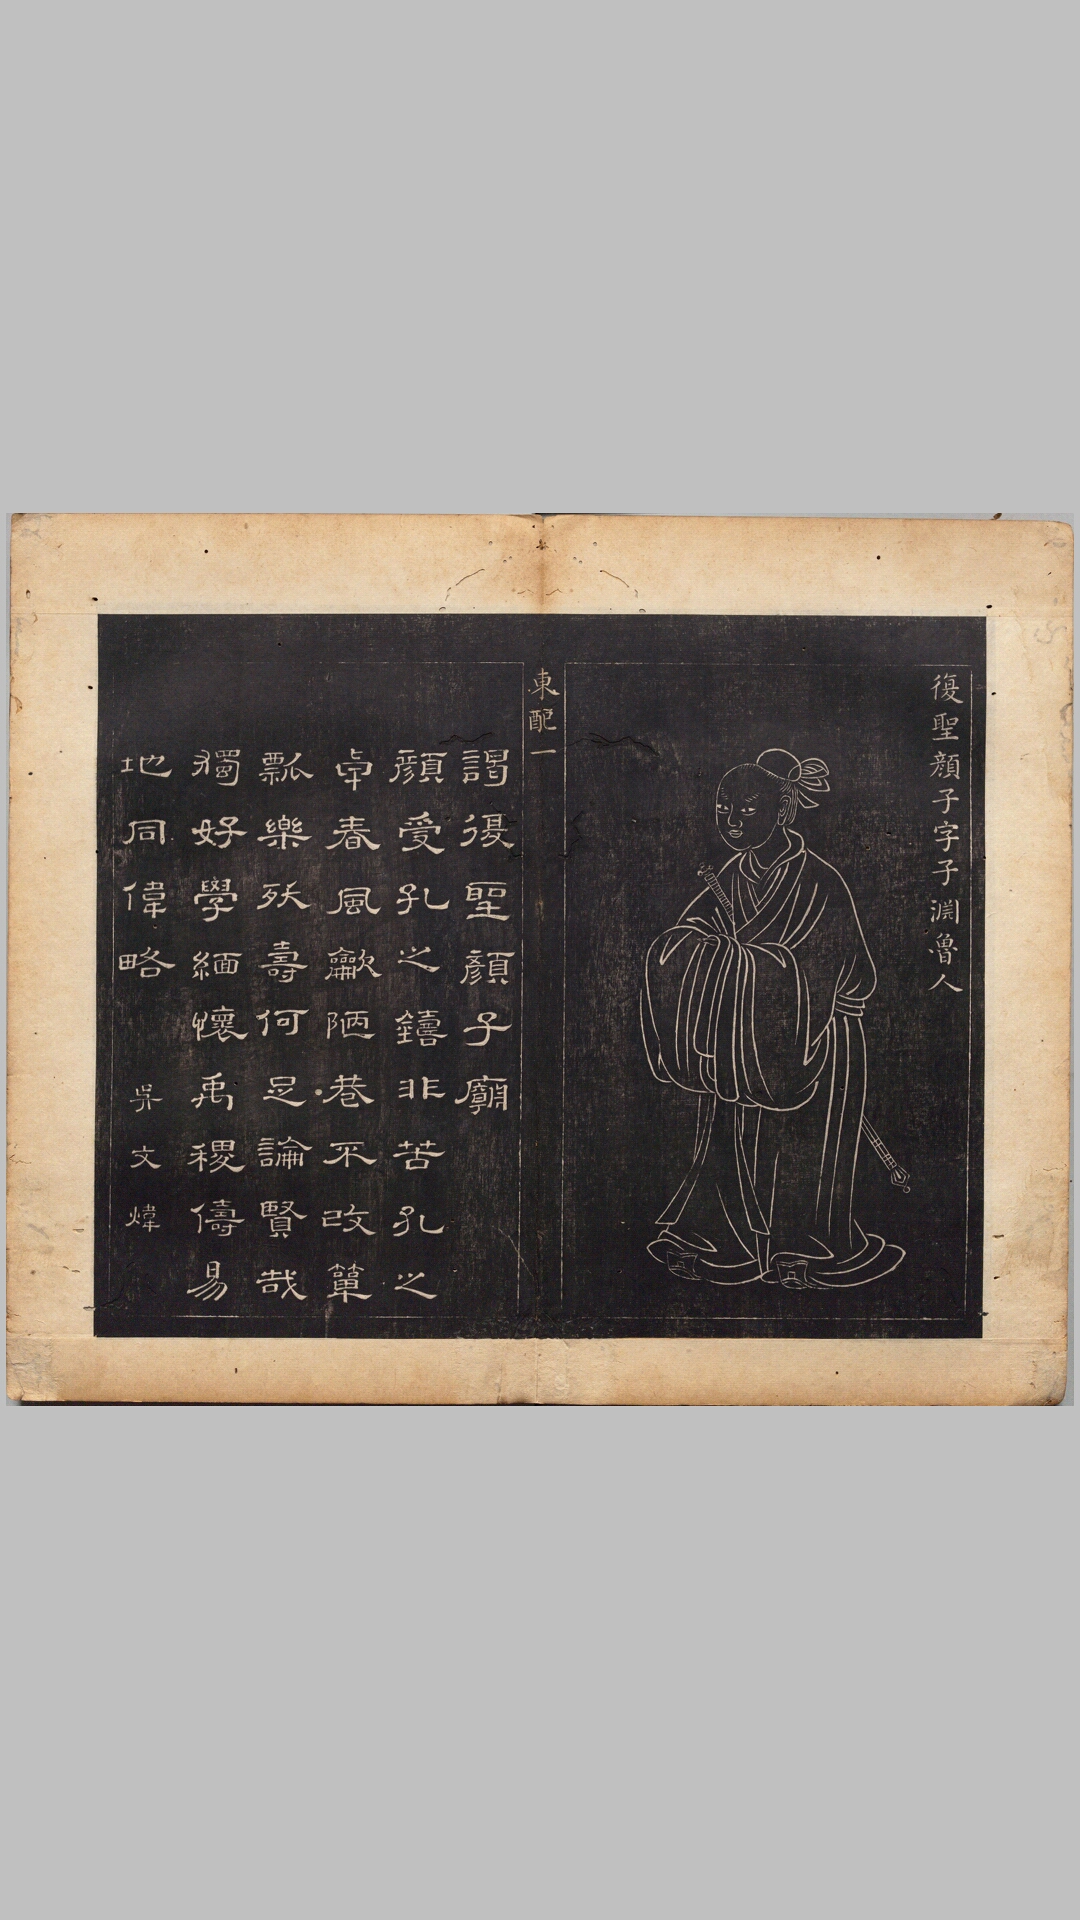 復聖顏子字子淵魯人
東配一
謁復聖顏子廟
顏受孔之鑄非苦孔之
卓春風歈陋巷不改簞
瓢樂殀壽何足論賢哉
獨好學緬懷禹稷儔易
地同偉略
吳文煒